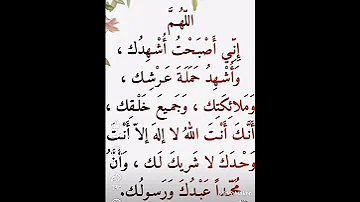 اللّهُمَّ
إِنِّي أَصْبَحْتُ أُشْهِدُك ،
وَأُشْهِدُ حَمَلَةَ عَـرْشِـك ،
وَمَلائِكَتك ، وَجَمـيعَ خَلْـقِك ،
أَنَّـكَ أَنْـتَ اللهُ لا إلهَ إلاّ أَنْـتَ
وَحْدَكَ لا شَريكَ لَـك ، وَأَنَّ
مُحَمَّداً عَبْدُكَ وَرَسولُـك.